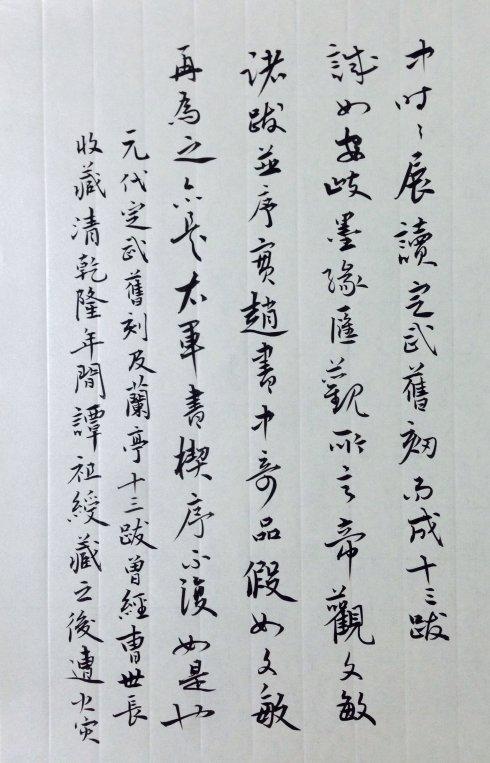 中時々展讀定武舊刻而成十三跋
誠如安歧墨緣匯觀所言帝觀文敏
諸跋並序實趙書中奇品假如文敏
再為之亦是右軍書禊序不復如是也
元代定武舊刻及蘭亭十三跋曾經曹世長
收藏清乾隆年間譚祖綬藏之後遭火災